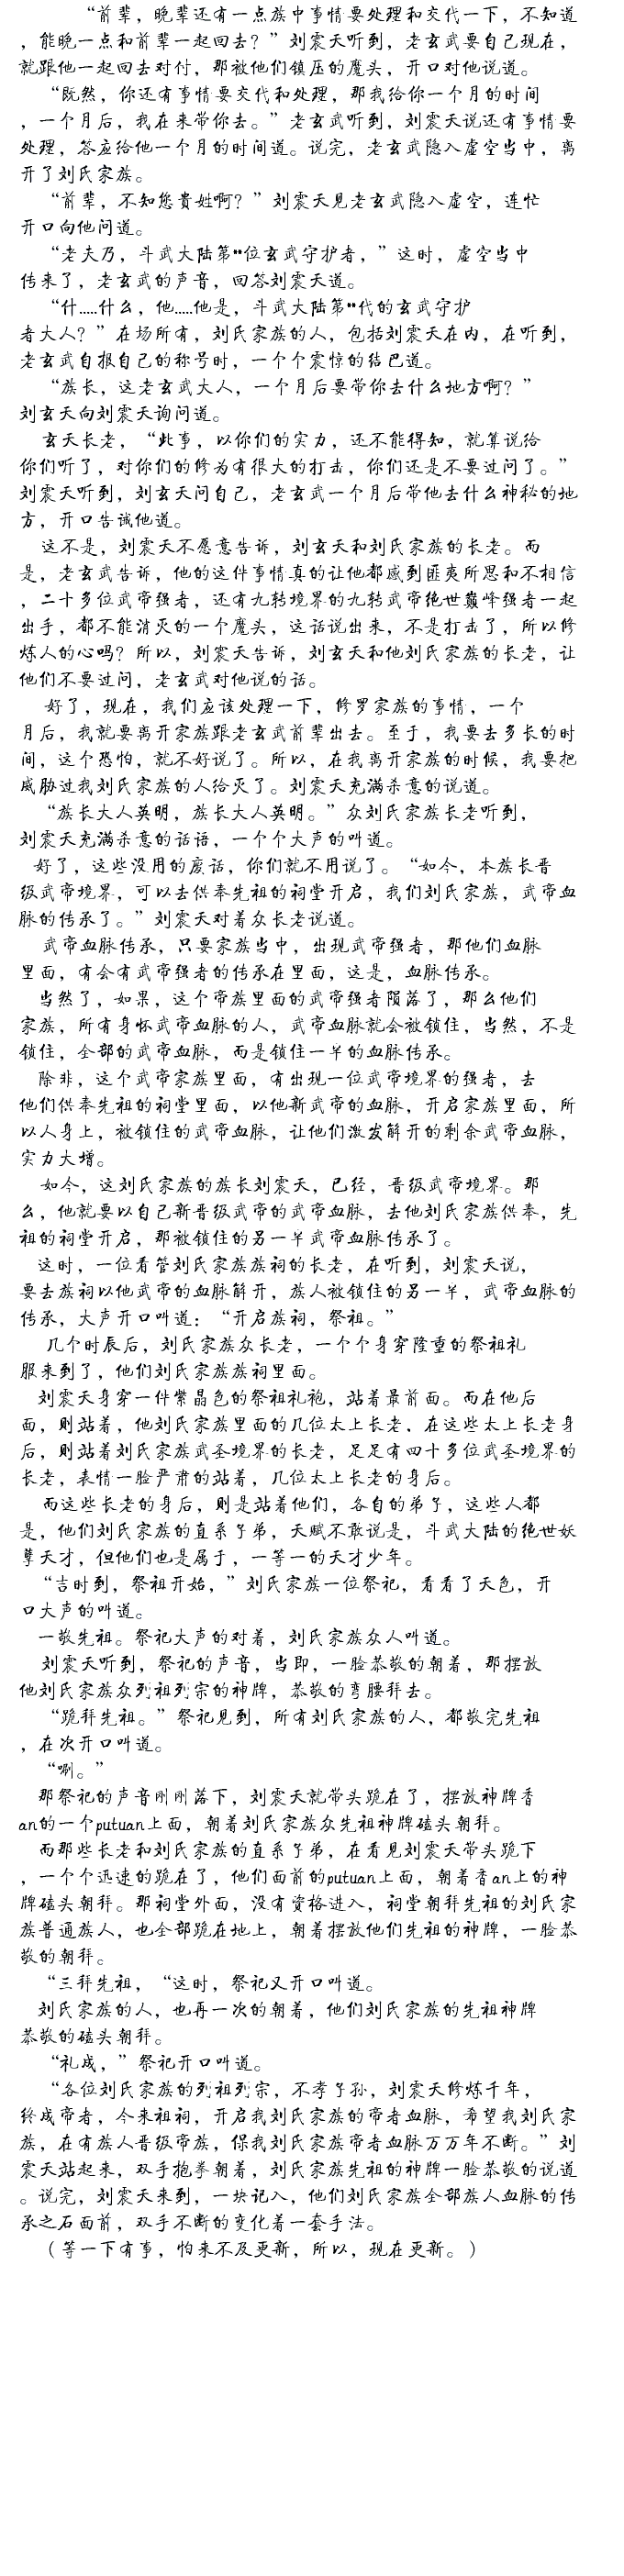 “前辈，晚辈还有一点族中事情要处理和交代一下，不知道
，能晚一点和前辈一起回去？”刘震天听到，老玄武要自己现在，
就跟他一起回去对付，那被他们镇压的魔头，开口对他说道。
“既然，你还有事情要交代和处理，那我给你一个月的时间
，一个月后，我在来带你去。”老玄武听到，刘震天说还有事情要
处理，答应给他一个月的时间道。说完，老玄武隐入虚空当中，离
开了刘氏家族。
“前辈，不知您贵姓啊？”刘震天见老玄武隐入虚空，连忙
开口向他问道。
“老夫乃，斗武大陆第**位玄武守护者，”这时，虚空当中
传来了，老玄武的声音，回答刘震天道。
“什.....什么，他.....他是，斗武大陆第**代的玄武守护
者大人？”在场所有，刘氏家族的人，包括刘震天在内，在听到，
老玄武自报自己的称号时，一个个震惊的结巴道。
“族长，这老玄武大人，一个月后要带你去什么地方啊？”
刘玄天向刘震天询问道。
玄天长老，“此事，以你们的实力，还不能得知，就算说给
你们听了，对你们的修为有很大的打击，你们还是不要过问了。”
刘震天听到，刘玄天问自己，老玄武一个月后带他去什么神秘的地
方，开口告诫他道。
这不是，刘震天不愿意告诉，刘玄天和刘氏家族的长老。而
是，老玄武告诉，他的这件事情真的让他都感到匪夷所思和不相信
，二十多位武帝强者，还有九转境界的九转武帝绝世巅峰强者一起
出手，都不能消灭的一个魔头，这话说出来，不是打击了，所以修
炼人的心吗？所以，刘震天告诉，刘玄天和他刘氏家族的长老，让
他们不要过问，老玄武对他说的话。
好了，现在，我们应该处理一下，修罗家族的事情，一个
月后，我就要离开家族跟老玄武前辈出去。至于，我要去多长的时
间，这个恐怕，就不好说了。所以，在我离开家族的时候，我要把
威胁过我刘氏家族的人给灭了。刘震天充满杀意的说道。
“族长大人英明，族长大人英明。”众刘氏家族长老听到，
刘震天充满杀意的话语，一个个大声的叫道。
好了，这些没用的废话，你们就不用说了。“如今，本族长晋
级武帝境界，可以去供奉先祖的祠堂开启，我们刘氏家族，武帝血
脉的传承了。”刘震天对着众长老说道。
武帝血脉传承，只要家族当中，出现武帝强者，那他们血脉
里面，有会有武帝强者的传承在里面，这是，血脉传承。
当然了，如果，这个帝族里面的武帝强者陨落了，那么他们
家族，所有身怀武帝血脉的人，武帝血脉就会被锁住，当然，不是
锁住，全部的武帝血脉，而是锁住一半的血脉传承。
除非，这个武帝家族里面，有出现一位武帝境界的强者，去
他们供奉先祖的祠堂里面，以他新武帝的血脉，开启家族里面，所
以人身上，被锁住的武帝血脉，让他们激发解开的剩余武帝血脉，
实力大增。
如今，这刘氏家族的族长刘震天，已经，晋级武帝境界。那
么，他就要以自己新晋级武帝的武帝血脉，去他刘氏家族供奉，先
祖的祠堂开启，那被锁住的另一半武帝血脉传承了。
这时，一位看管刘氏家族族祠的长老，在听到，刘震天说，
要去族祠以他武帝的血脉解开，族人被锁住的另一半，武帝血脉的
传承，大声开口叫道：“开启族祠，祭祖。”
几个时辰后，刘氏家族众长老，一个个身穿隆重的祭祖礼
服来到了，他们刘氏家族族祠里面。
刘震天身穿一件紫晶色的祭祖礼袍，站着最前面。而在他后
面，则站着，他刘氏家族里面的几位太上长老，在这些太上长老身
后，则站着刘氏家族武圣境界的长老，足足有四十多位武圣境界的
长老，表情一脸严肃的站着，几位太上长老的身后。
而这些长老的身后，则是站着他们，各自的弟子，这些人都
是，他们刘氏家族的直系子弟，天赋不敢说是，斗武大陆的绝世妖
孽天才，但他们也是属于，一等一的天才少年。
“吉时到，祭祖开始，”刘氏家族一位祭祀，看看了天色，开
口大声的叫道。
一敬先祖。祭祀大声的对着，刘氏家族众人叫道。
刘震天听到，祭祀的声音，当即，一脸恭敬的朝着，那摆放
他刘氏家族众列祖列宗的神牌，恭敬的弯腰拜去。
“跪拜先祖。”祭祀见到，所有刘氏家族的人，都敬完先祖
，在次开口叫道。
“唰。”
那祭祀的声音刚刚落下，刘震天就带头跪在了，摆放神牌香
an的一个putuan上面，朝着刘氏家族众先祖神牌磕头朝拜。
而那些长老和刘氏家族的直系子弟，在看见刘震天带头跪下
，一个个迅速的跪在了，他们面前的putuan上面，朝着香an上的神
牌磕头朝拜。那祠堂外面，没有资格进入，祠堂朝拜先祖的刘氏家
族普通族人，也全部跪在地上，朝着摆放他们先祖的神牌，一脸恭
敬的朝拜。
“三拜先祖，“这时，祭祀又开口叫道。
刘氏家族的人，也再一次的朝着，他们刘氏家族的先祖神牌
恭敬的磕头朝拜。
“礼成，”祭祀开口叫道。
“各位刘氏家族的列祖列宗，不孝子孙，刘震天修炼千年，
终成帝者，今来祖祠，开启我刘氏家族的帝者血脉，希望我刘氏家
族，在有族人晋级帝族，保我刘氏家族帝者血脉万万年不断。”刘
震天站起来，双手抱拳朝着，刘氏家族先祖的神牌一脸恭敬的说道
。说完，刘震天来到，一块记入，他们刘氏家族全部族人血脉的传
承之石面前，双手不断的变化着一套手法。
（等一下有事，怕来不及更新，所以，现在更新。）